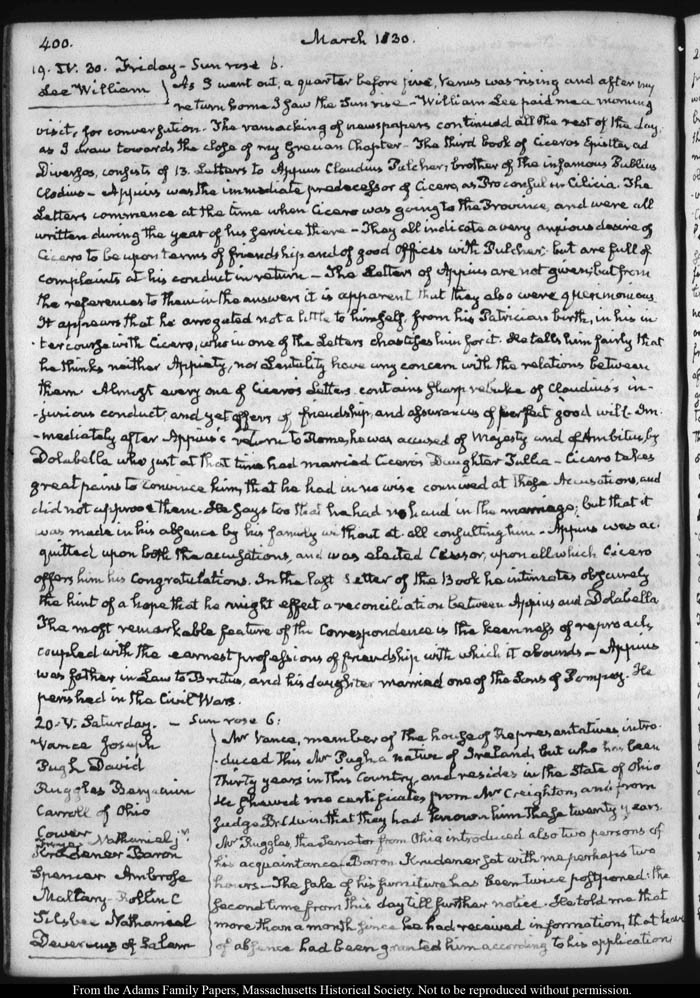 400. March 1830.
19. IV. 30. Friday - Sun rose 6.
Lee William } As I went out, a quarter before five, Venus was rising and after my
return home I saw the Sun rise - William Lee paid me a morning
visit, for conversation. The ransacking of newspapers continued all the rest of the day,
as I draw towards the close of my Grecian Chapter - The third book of Ciceros Epistles ad
Diversos, consists of 13. Letters to Appius Claudius Pulcher, brother of the infamous Publius
Clodius - Appius was the immediate predecessor of Cicero, as Proconsul in Cilicia. The
Letters commence at the time when Cicero was going to the Province, and were all
written during the year of his service there - They all indicate a very anxious desire of
Cicero to be upon terms of friendship and of good Offices with Pulcher, but are full of
complaints at his conduct in return - The Letters of Appius are not given, but from
the references to them in the answers it is apparent that they also were querimonious.
It appears that he arrogated not a little to himself, from his Patrician birth, in his in-
tercourse with Cicero, who in one of the Letters chastises him for it. He tells him fairly that
he thinks neither Appiety, nor Lentility have any concern with the relations between
them. Almost every one of Cicero's Letters contains sharp rebuke of Claudius's in-
-jurious conduct, and yet offers of friendship, and assurances of perfect good will - Im-
-mediately after Appius's return to Rome, he was accused of Majesty and of Ambitus, by
Dolabella who just at that time had married Cicero's Daughter Tullia - Cicero takes
great pains to convince him, that he had in no wise connived at these Accusations, and
did not approve them. He says too that he had no hand in the marriage; but that it
was made in his absence by his family without at all consulting him - Appius was ac-
quitted upon both the accusations, and was elected Censor, upon all which Cicero
offers him his Congratulations. In the last Letter of the Book he intimates obscurely
the hint of a hope that he might effect a reconciliation between Appius and Dolabella
The most remarkable feature of the Correspondence is the keenness of reproach,
coupled with the earnest professions of friendship with which it abounds - Appius
was father in Law to Brutus, and his daughter married one of the Sons of Pompey. He
perished in the Civil Wars.
20. V. Saturday. - Sun rose 6:
Vance Joseph
Pugh David
Ruggles Benjamin
Carroll of Ohio
Cower
Nathaniel jr.
Krudener Baron
Spencer Ambrose
Mallary Rollin C
Silsbee Nathaniel
Devereux of Salem
Mr. Vance, member of the house of Representatives, intro-
-duced this Mr Pugh a native of Ireland, but who has been
thirty years in this Country, and resides in the State of Ohio
He shewed me certificates from Mr Creighton, and from
Judge Baldwin that they had known him these twenty years.
Mr Ruggles, the Senator from Ohio introduced also two persons of
his acquaintance. Baron Krudener sat with me perhaps two
hours - The sale of his furniture has been twice postponed: the
second time from this day till further notice. He told me that
more than a month since he had received information, that leave
of absence had been granted him according to his application
From the Adams Family Papers, Massachusetts Historical Society. Not to be reproduced without permission.